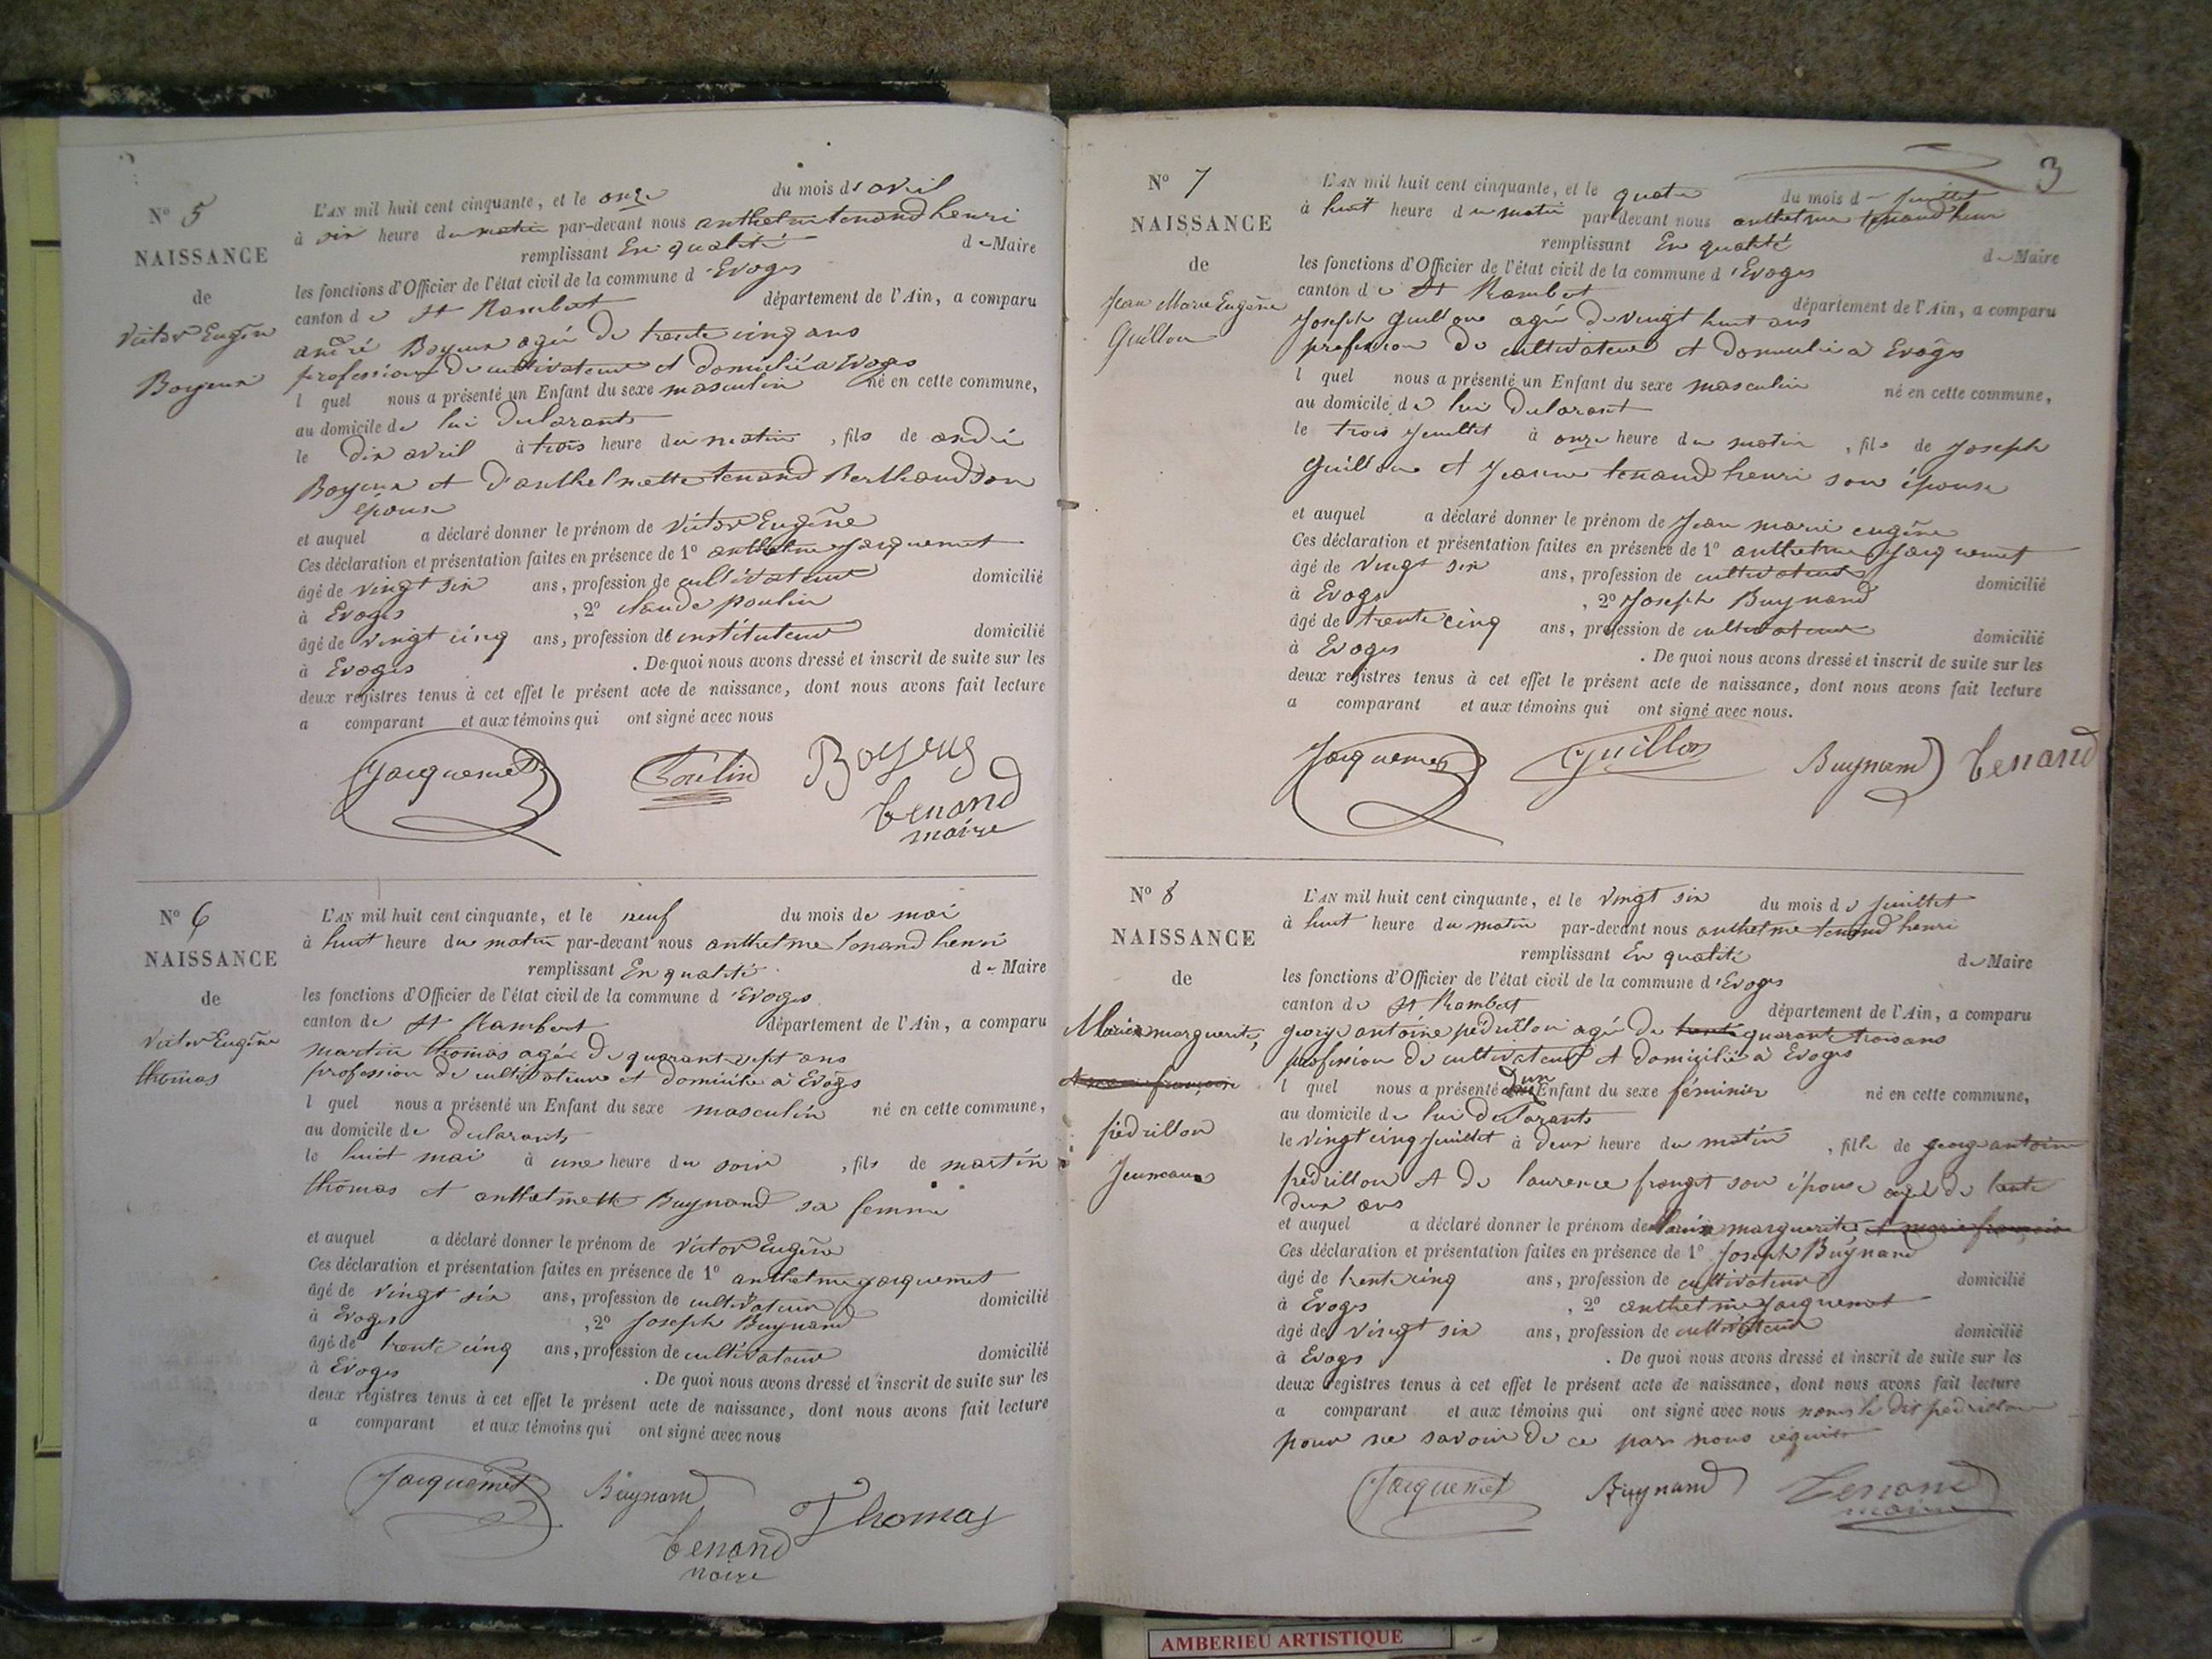 N° 5
NAISSANCE
de
Victor Eugêne
Boyeux
L'AN mil huit cent cinquante, et le onze du mois d' avril
à six heure du matin par-devant nous anthelme tenand henri
remplissant En qualité de Maire
les fonctions d'Officier de l'état civil de la commune d'Evoges
canton de St Rambert département de l'Ain, a comparu
andré Boyeux agé de trente cinq ans
profession de cultivateur et domicilié a Evoges
l quel nous a présenté un Enfant du sexe masculin né en cette commune,
au domicile de lui declarant
le dix avril à trois heure du matin, fils de andré
Boyeux et d'anthelmette tenand Berthaud son
épouse
et auquel a déclaré donner le prénom de Victor Eugêne
Ces déclaration et présentation faites en présence de 1° anthelme jacquemet
âgé de vingt six ans, profession de cultivateur domicilié
à Evoges, 2° claude poulin
âgé de vingt cinq ans, profession de instituteur domicilié
à Evoges. De quoi nous avons dressé et inscrit de suite sur les
deux registres tenus à cet effet le présent acte de naissance, dont nous avons fait lecture
a comparant et aux témoins qui ont signé avec nous
Jacquemet Poulin Boyeux
tenand
maire
N° 6
NAISSANCE
de
Victor Eugêne
thomas
L'AN mil huit cent cinquante, et le neuf du mois de mai
à huit heure du matin par-devant nous anthelme tenand henri
remplissant En qualité de Maire
les fonctions d'Officier de l'état civil de la commune d'Evoges
canton de St Rambert département de l'Ain, a comparu
martin thomas agé de quarante sept ans
profession de cultivateur et domicilié à Evoges
l quel nous a présenté un Enfant du sexe masculin né en cette commune,
au domicile de declarant
le huit mai à une heure du soir, fils de martin
thomas et anthelmette Buynand sa femme
et auquel a déclaré donner le prénom de Victor Eugêne
Ces déclaration et présentation faites en présence de 1° anthelme jacquemet
âgé de vingt six ans, profession de cultivateur domicilié
à Evoges, 2° Joseph Buynand
âgé de trente cinq ans, profession de cultivateur domicilié
à Evoges. De quoi nous avons dressé et inscrit de suite sur les
deux registres tenus à cet effet le présent acte de naissance, dont nous avons fait lecture
a comparant et aux témoins qui ont signé avec nous
Jacquemet Buynand Thomas
tenand
maire
3
N° 7
NAISSANCE
de
Jean Marie Eugêne
Guillon
L'AN mil huit cent cinquante, et le quatre du mois d juillet
à huit heure du matin par-devant nous anthelme tenand henri
remplissant En qualité de Maire
les fonctions d'Officier de l'état civil de la commune d'Evoges
canton de St Rambert département de l'Ain, a comparu
Joseph Guillon agé de vingt huit ans
profession de cultivateur et domicilié à Evoges
l quel nous a présenté un Enfant du sexe masculin né en cette commune,
au domicile de lui declarant
le trois juillet à onze heure du matin, fils de Joseph
Guillon et Jeanne tenand henri son épouse
et auquel a déclaré donner le prénom de Jean marie eugêne
Ces déclaration et présentation faites en présence de 1° anthelme jacquemet
âgé de vingt six ans, profession de cultivateur domicilié
à Evoges, 2° Joseph Buynand
âgé de trente cinq ans, profession de cultivateur domicilié
à Evoges. De quoi nous avons dressé et inscrit de suite sur les
deux registres tenus à cet effet le présent acte de naissance, dont nous avons fait lecture
a comparant et aux témoins qui ont signé avec nous.
Jacquemet Guillon Buynand tenand
N° 8
NAISSANCE
de
Marie marguerite,
et marie françoise
pédrillon
Jumeaux
L'AN mil huit cent cinquante, et le vingt six du mois de juillet
à huit heure du matin par-devant nous anthelme tenand henri
remplissant En qualité de Maire
les fonctions d'Officier de l'état civil de la commune d'Evoges
canton de St Rambert département de l'Ain, a comparu
george antoine pédrillon agé de trente quarante trois ans
profession de cultivateur et domicilié à Evoges
l quel nous a présenté un Enfant du sexe féminin né en cette commune,
au domicile de lui declarant
le vingt cinq juillet à deux heure du matin, fille de george antoine
pédrillon et de laurence agé de trente
deux ans
et auquel a déclaré donner le prénom de Marie marguerite, et marie françoise
Ces déclaration et présentation faites en présence de 1° Joseph Buynand
âgé de trente cinq ans, profession de cultivateur domicilié
à Evoges, 2° anthelme jacquemet
âgé de vingt six ans, profession de cultivateur domicilié
à Evoges. De quoi nous avons dressé et inscrit de suite sur les
deux registres tenus à cet effet le présent acte de naissance, dont nous avons fait lecture
a comparant et aux témoins qui ont signé avec nous nom le dit pedrillon
pour ne savoir de ce par nous requis
Jacquemet Buynand tenand
maire
AMBERIEU ARTISTIQUE